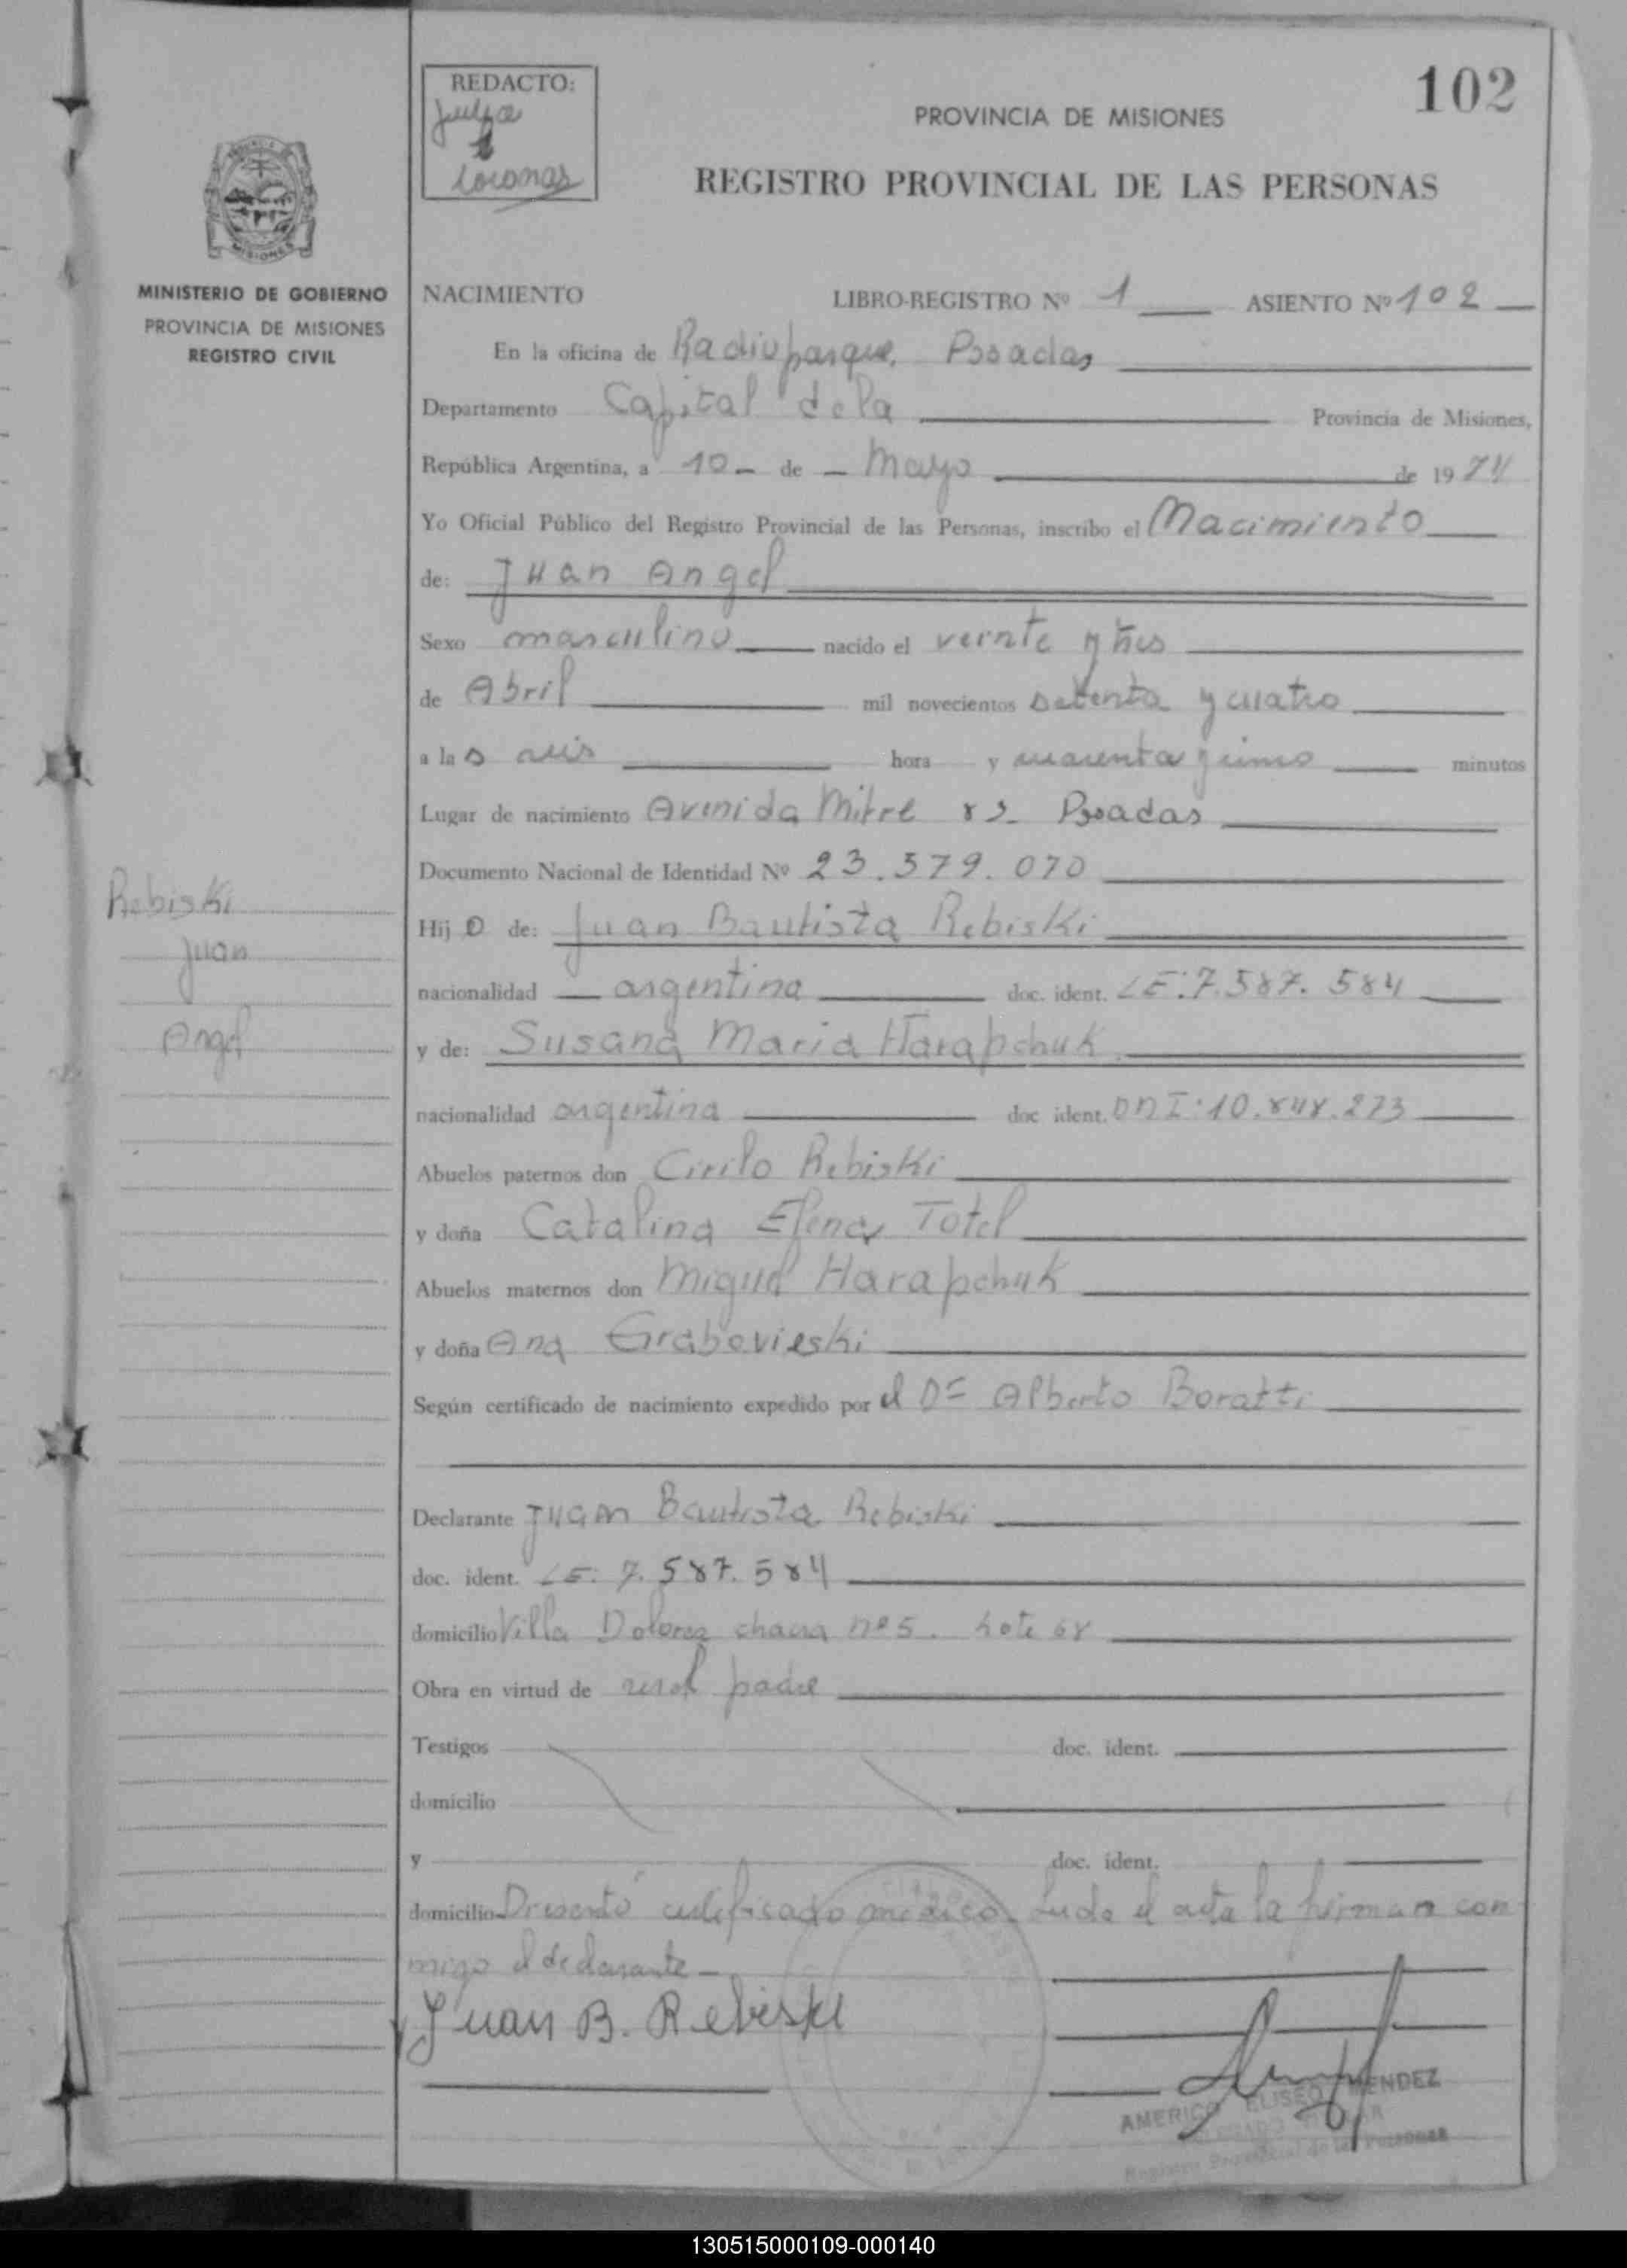 102
REDACTO:
PROVINCIA DE MISIONES
REGISTRO PROVINCIAL DE LAS PERSONAS
MISIONES
MINISTERIO DE GOBIERNO
PROVINCIA DE MISIONES
REGISTRO CIVIL
NACIMIENTO LIBRO-REGISTRO Nº 1 ASIENTO Nº 102
En la oficina de Radioparque. Posadas
Departamento Capital de la Provincia de Misiones,
República Argentina, a 10 de Mayo de 1974
Yo Oficial Público del Registro Provincial de las Personas, inscribo el Nacimiento
de: Juan Angel
Sexo masculino nacido el veinte y tres
de Abril mil novecientos setenta y cuatro
a las seis hora y cuarenta y cinco minutos
Lugar de nacimiento Avenida Mitre 82 Posadas
Documento Nacional de Identidad Nº 23.579.070
Rebiski
Juan
Angel
Hijo de: Juan Bautista Rebiski
nacionalidad argentina doc. ident. LE: 7.587.584
y de: Susana Maria Harapchuk
nacionalidad argentina doc ident. DNI: 10.848.273
Abuelos paternos don Cirilo Rebiski
y doña Catalina Elena Totel
Abuelos maternos don Miguel Harapchuk
y doña Ana Grabovieski
Según certificado de nacimiento expedido por el Dr Alberto Boratti
Declarante Juan Bautista Rebiski
doc. ident. LE: 7.587.584
domicilio Villa Dolores chacra nº 5. Lote 68
Obra en virtud de ser el padre
Testigos doc. ident.
domicilio
y doc. ident.
domicilio Presentó certificado médico. Leida el acta la firman con
migo el declarante
Juan B. Rebiski
AMERICO ELISEO MENDEZ
Registro Provincial de las Personas
130515000109-000140